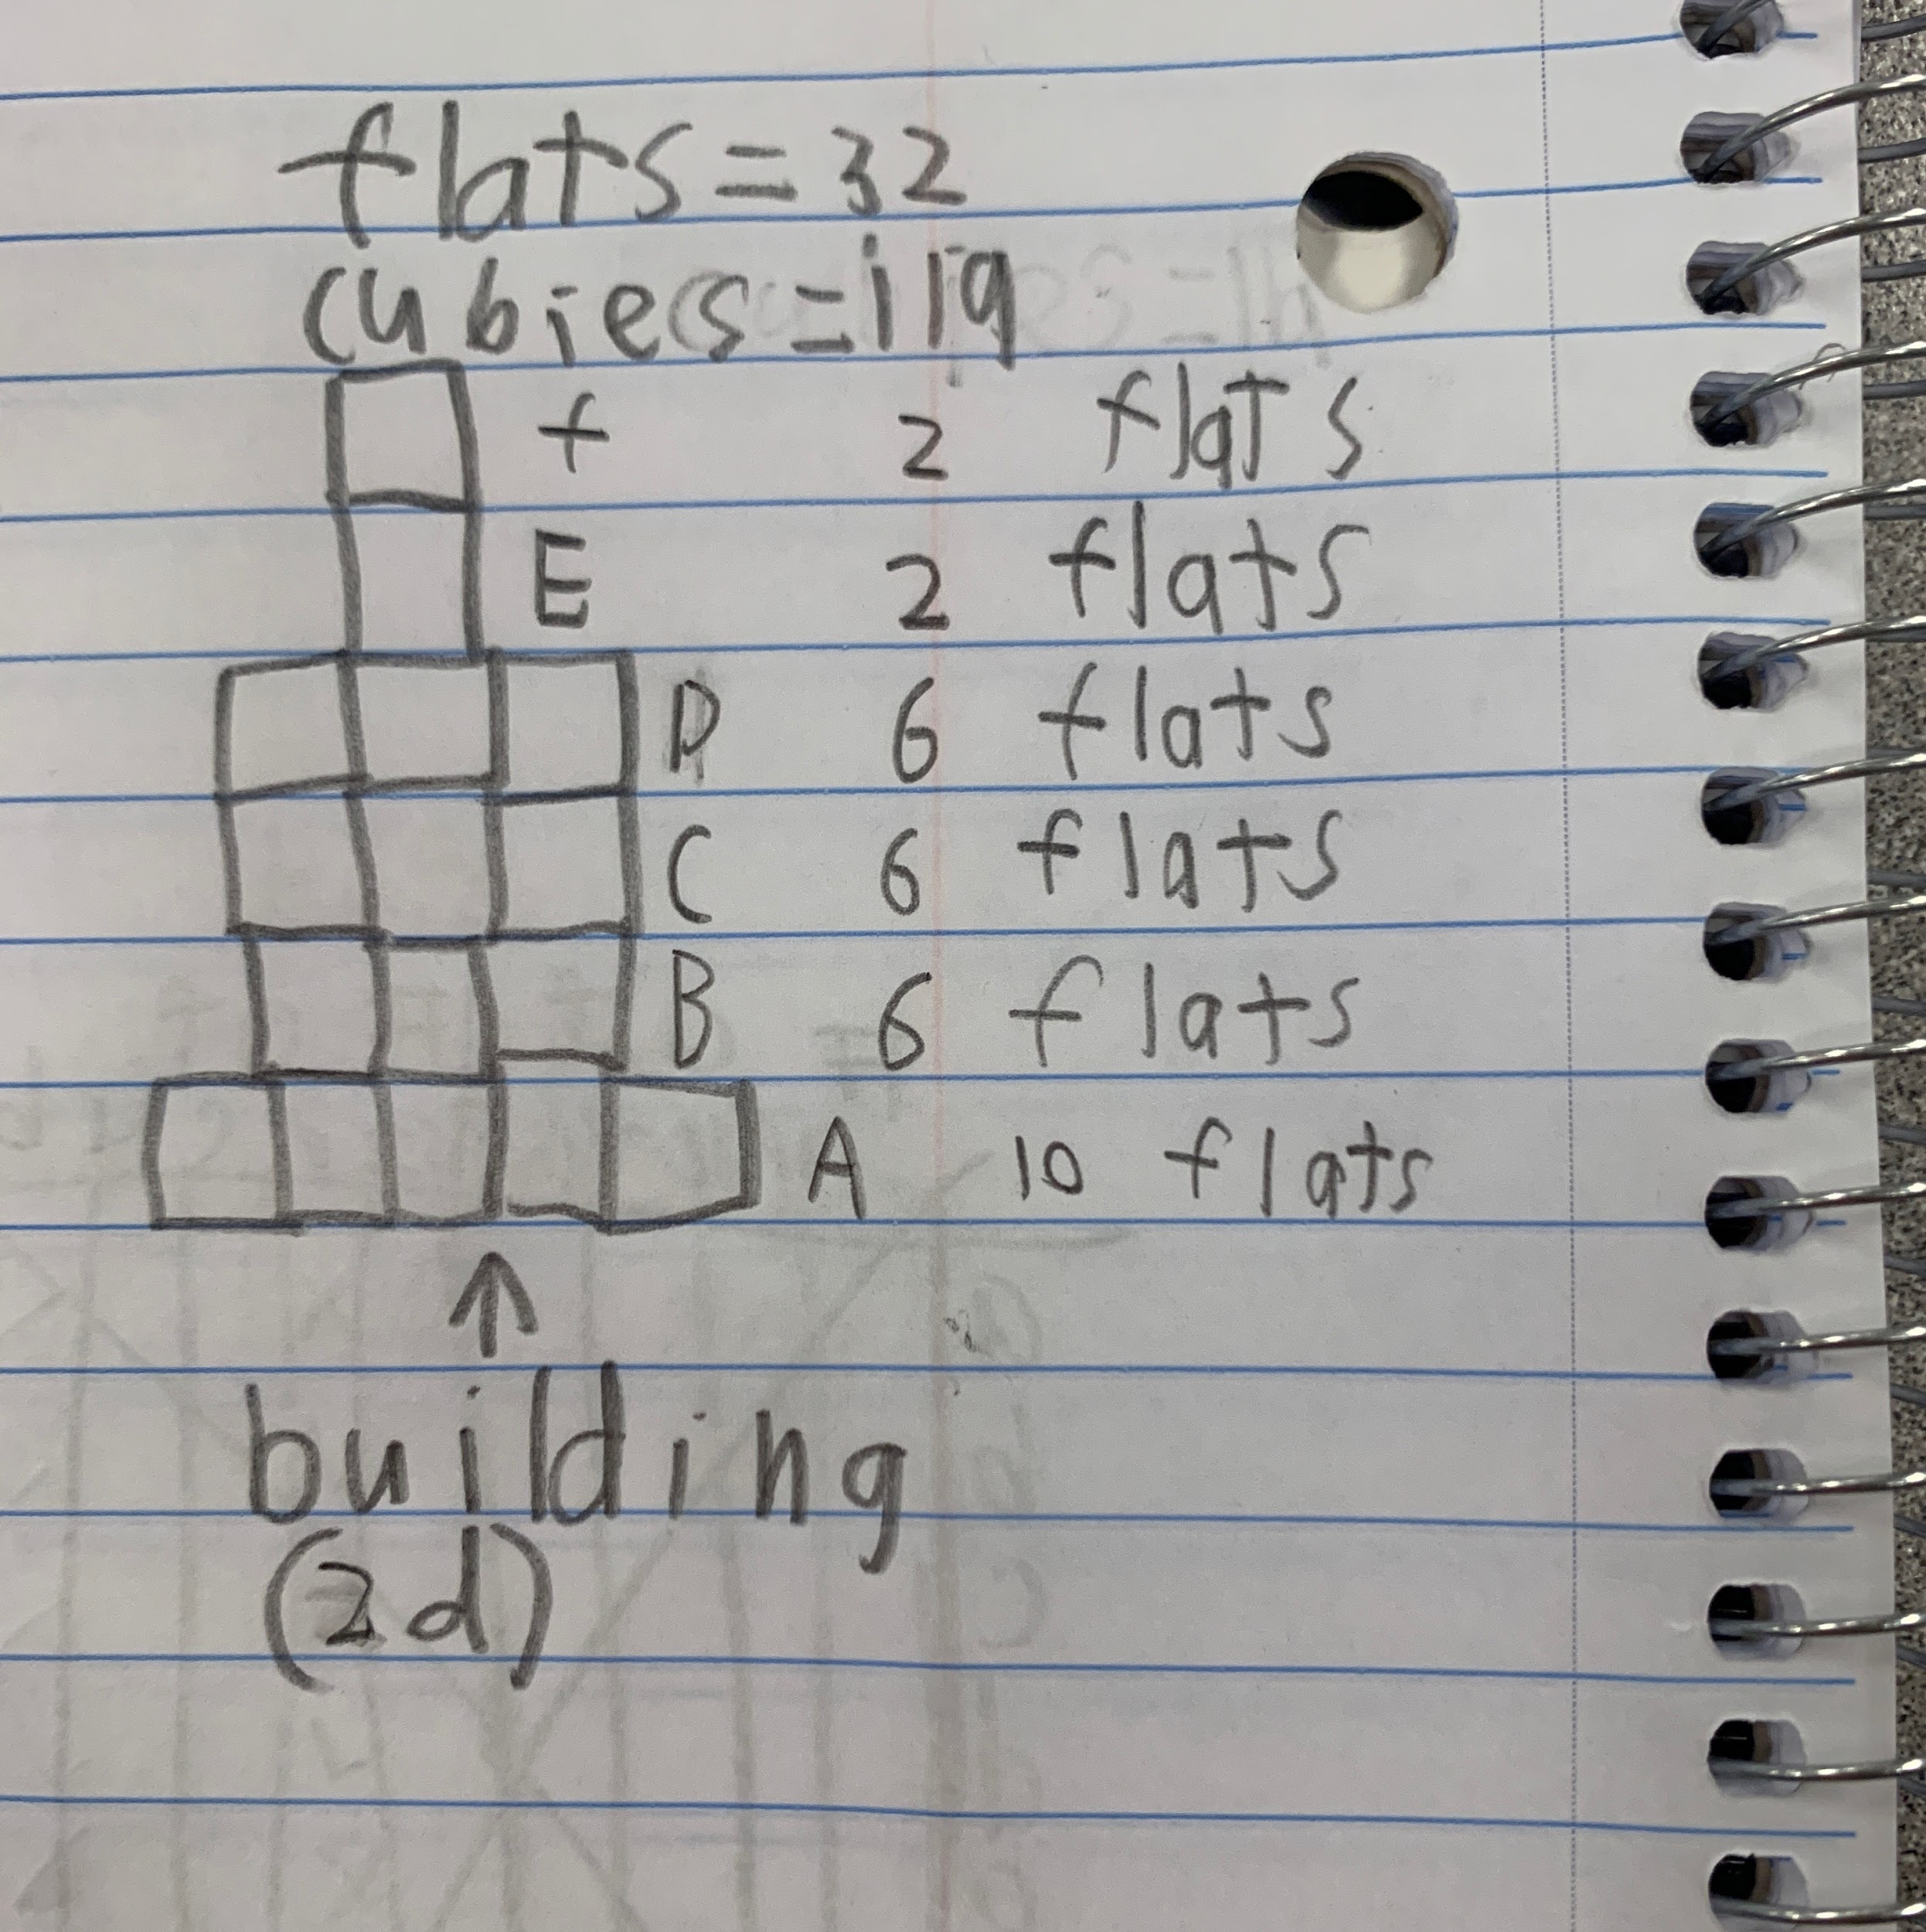 flats = 32
cubies = 119
f 2 flats
E 2 flats
D 6 flats
C 6 flats
B 6 flats
A 10 flats
building
(2d)